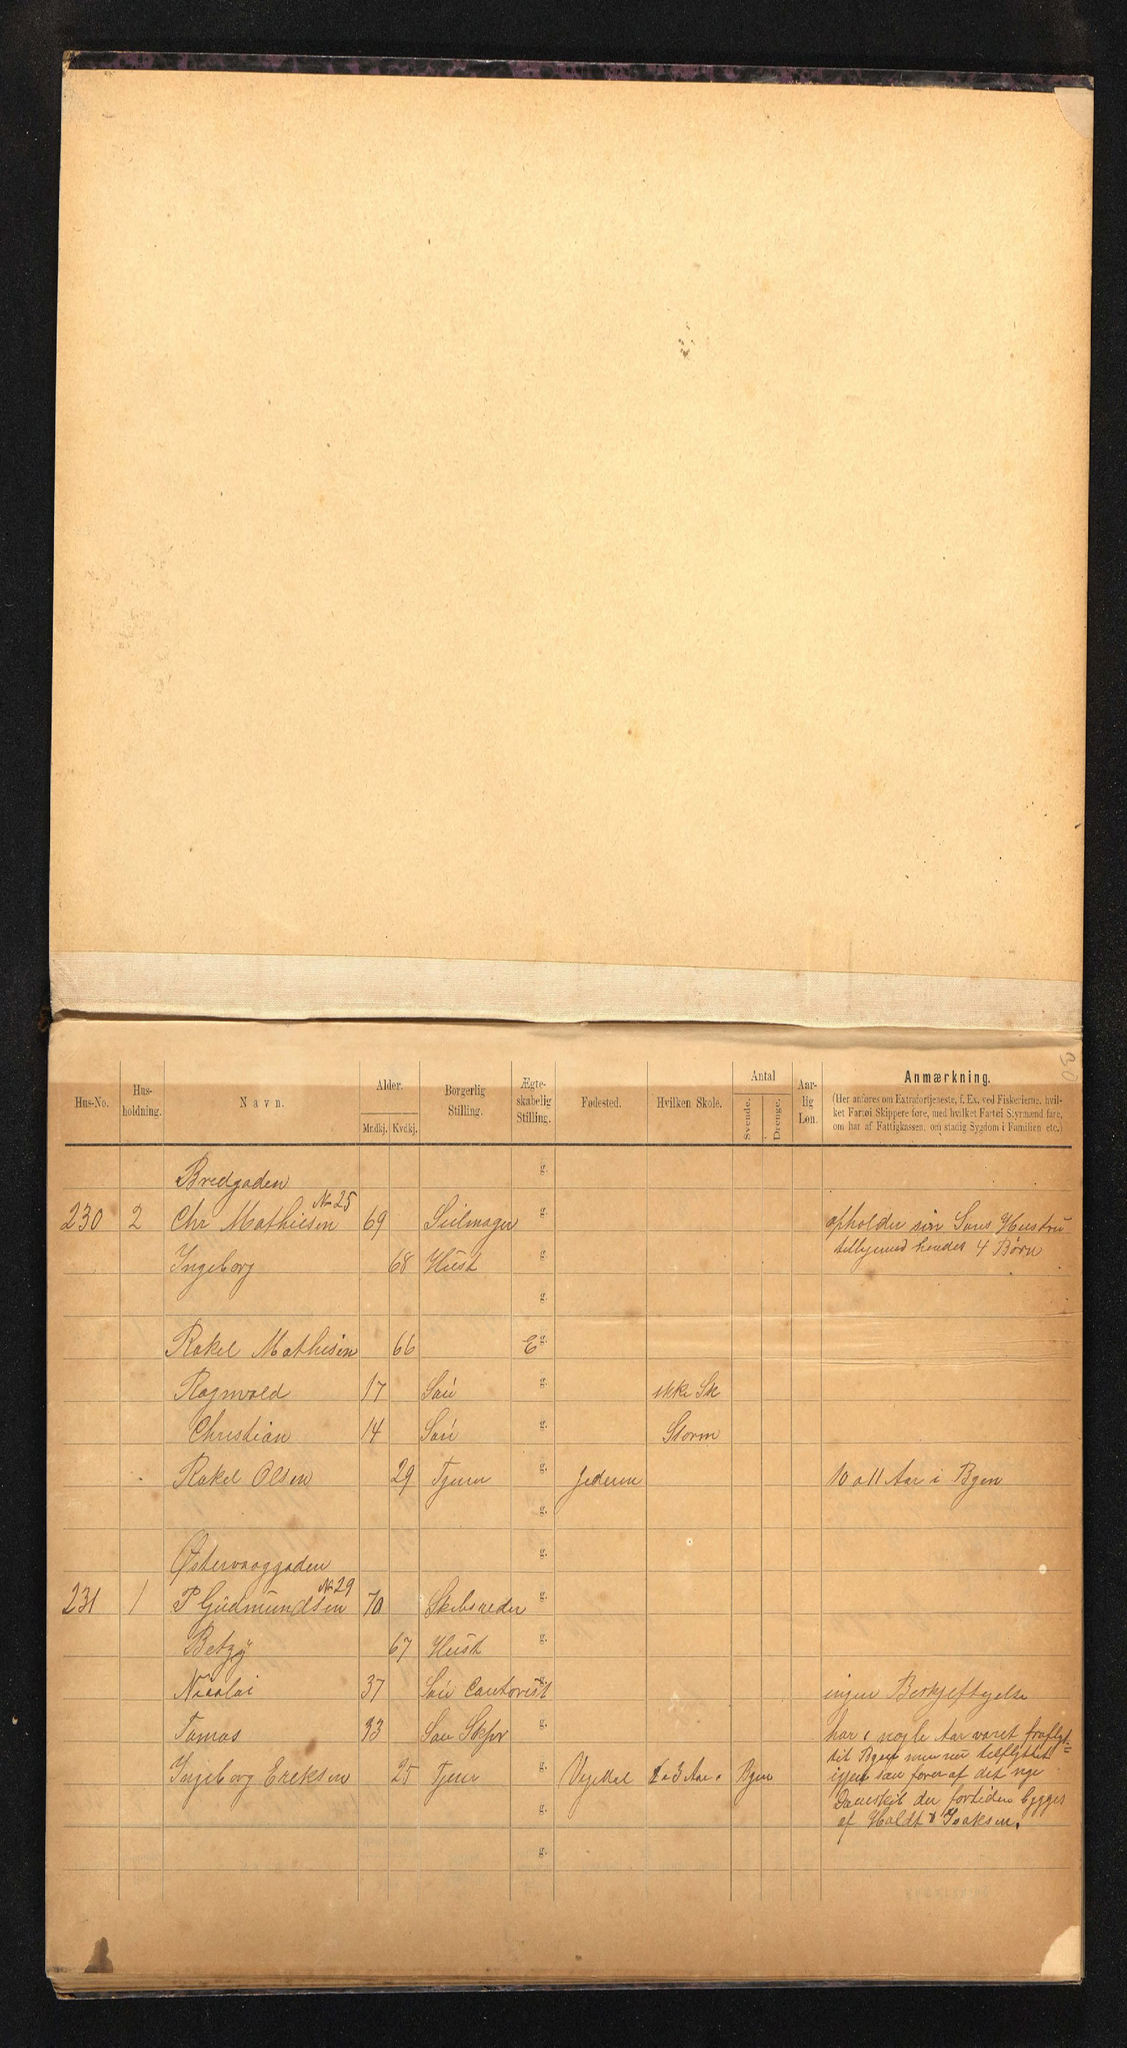 30
Hus-No. Hus-holdning. Navn. Alder. Mndkj. Kvdkj. Borgerlig Stilling. Ægte-skabelig Stilling. Fødested. Hvilken Skole. Antal Svende. Drenge. Aar-lig Løn. Anmærkning.
(Her anføres om Extrafortjeneste, f. Ex. ved Fiskerierne, hvil-
ket Fartøi Skippere føre, med hvilket Fartøi Styrmænd fare,
om har af Fattigkassen, om stadig Sygdom i Familien etc.)
Bredgaden g.
No 25
230 2 Chr Mathiesen 69 Seilmager g. opholder sin Søns Hustru
Ingeborg 68 Hust g. tilligemed hendes 4 Børn
g.
Rakel Mathisen 66 E g.
Ragnvald 17 Søn g. ikke Sk
Christian 14 Søn g. Storm
Rakel Olsen 29 Tjener g. Jederen 10 a 11 Aar i Byen
g.
Østervaaggaden g.
No 29
231 1 P Gudmundsen 70 Skibsreder g.
Betzy 67 Hust g.
Nicolai 37 Søn Contorist g. ingen Beskjeftigelse
Tomas 33 Søn Skpr g. har i nogle Aar været fraflyt-
tit Byen men nu tilflyttet
Ingeborg Ereksen 25 Tjener g. 2 a 3 Aar i Byen igjen som fører af det nye
g. Dampskib der fortiden bygges
af Holdt & Isaksen.
g.